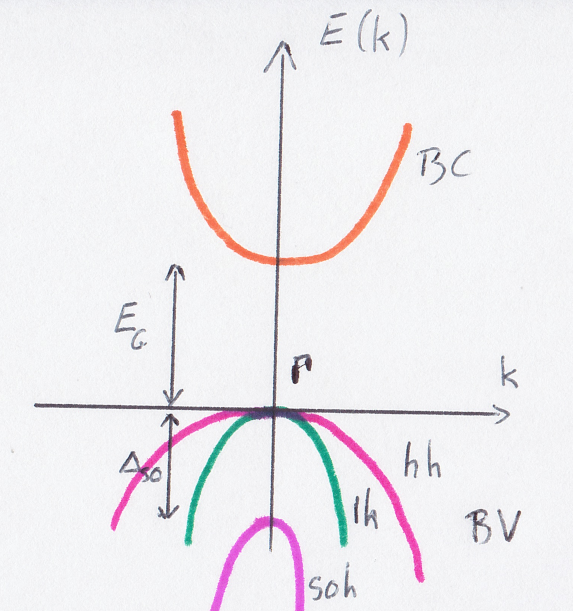 E(k)
BC
E_G
Γ
k
Δ_so
hh
lh
BV
soh